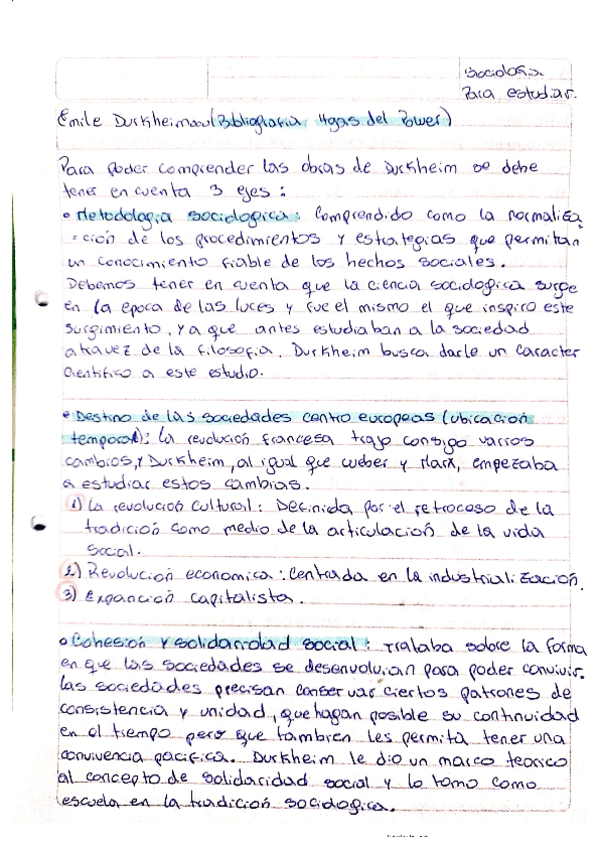 Sociologia.
Para estudiar.
Emile Durkheim (Bibliografia Hojas del Power)
Para poder comprender las obras de Durkheim se debe
tener en cuenta 3 ejes:
• Metodologia sociologica: Comprendido como la normaliza
-ción de los procedimientos y estrategias que permitan
un conocimiento fiable de los hechos sociales.
Debemos tener en cuenta que la ciencia sociologica surge
en la epoca de las luces y fue el mismo el que inspiro este
surgimiento, ya que antes estudiaban a la sociedad
atravez de la filosofia. Durkheim busca darle un caracter
cientifico a este estudio.
• Destino de las sociedades centro europeas (ubicacion
temporal): La revolución francesa trajo consigo varios
cambios, y Durkheim, al igual que weber y Marx, empezaba
a estudiar estos cambios.
1) La revolución cultural: Definida por el retroceso de la
tradición como medio de la articulación de la vida
social.
2) Revolución economica: Centrada en la industrialización.
3) Expanción capitalista.
• Cohesión y solidaridad social: Trataba sobre la forma
en que las sociedades se desenvolvian para poder convivir.
Las sociedades precisan conservar ciertos patrones de
consistencia y unidad, que hagan posible su continuidad
en el tiempo pero que tambien les permita tener una
convivencia pacifica. Durkheim le dio un marco teorico
al concepto de solidaridad social y lo tomo como
escuela en la tradición sociologica.